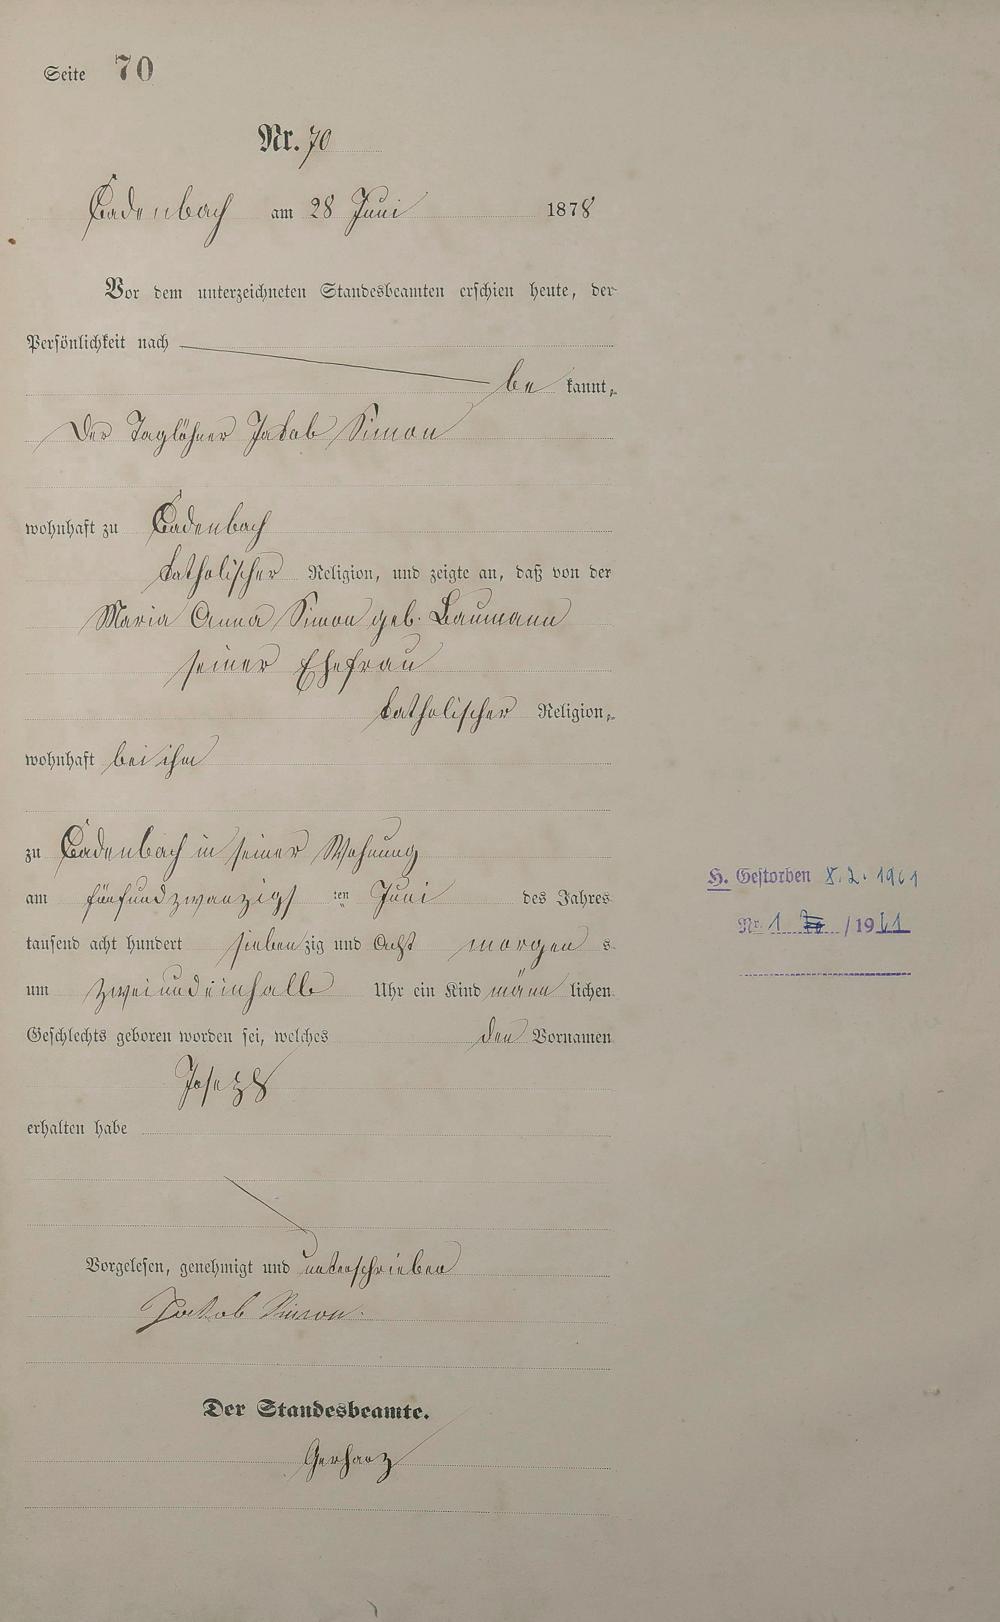 Seite 70
Nr. 70
Cadenbach am 28 Juni 1878
Vor dem unterzeichneten Standesbeamten erschien heute, der
Persönlichkeit nach
be kannt,
Der Taglöhner Jakob Simon
wohnhaft zu Cadenbach
katholischer Religion, und zeigte an, daß von der
Maria Anna Simon geb. Baumann
seiner Ehefrau
katholischer Religion,
wohnhaft bei ihm
zu Cadenbach in seiner Wohnung
am fünfundzwanzigs ten Juni des Jahres
tausend acht hundert sieben zig und Acht morgen s
um zweiundeinhalb Uhr ein Kind männ lichen
Geschlechts geboren worden sei, welches den Vornamen
Joseph
erhalten habe
Vorgelesen, genehmigt und unterschrieben
Jakob Simon.
Der Standesbeamte.
Gerharz
H. Gestorben 8.2.1961
Nr. 1 /1961